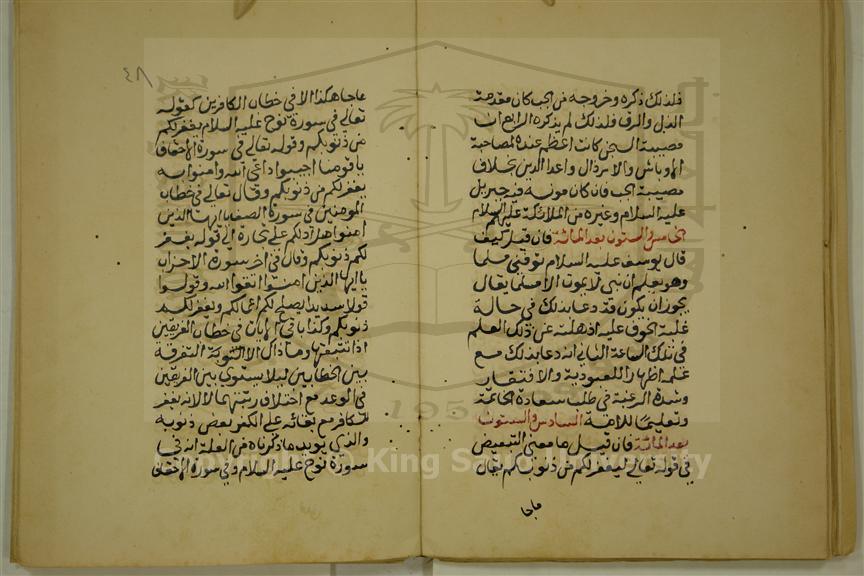 فلذلك ذكره وخروجه من الجب كان مقدمة
الذل والرق فلذلك لم يذكره الرابع ان
مصيبة السجن كانت اعظم عنده لمصاحبة
الاوباش والاراذل واعدا الدين بخلاف
مصيبة الجب فان كان مونسه فيه جبريل
عليه السلام وغيره من الملائكة عليهم السلام
الخامس والستون بعد المائة فان قيل كيف
قال يوسف عليه السلام توفني مسلما
وهو يعلم ان نبي لا يموت الا مسلما يقال
يجوز ان يكون قد دعا بذلك في حالة
غلبة الخوف عليه اذهلته عن ذلك العلم
في تلك الساعة الثاني انه دعا بذلك مع
علمه اظهارا للعبودية والافتقار
وشدة الرغبة في طلب سعادة الخاتمة
وتعليما للامة السادس والستون
بعد المائة فان قيل ما معنى التبعيض
في قوله تعالى ليغفر لكم من ذنوبكم يقال
ماجا
٤٨
ماجا هكذا الا في خطاب الكافرين كقوله
تعالى في سورة نوح عليه السلام يغفر لكم
من ذنوبكم وقوله تعالى في سورة الاحقاف
يا قومنا اجيبوا داعي الله وامنوا به
يغفر لكم من ذنوبكم وقال تعالى في خطاب
المومنين في سورة الصف يا ايها الذين
امنوا هل ادلكم على تجارة الى قوله يغفر
لكم ذنوبكم وقال في اخر سورة الاحزاب
يا ايها الذين امنوا اتقوا الله وقولوا
قولا سديدا يصلح لكم اعمالكم ويغفر لكم
ذنوبكم وكذا باقي الايات في خطاب الفريقين
اذا تتبعتها وما ذاك الا للتوية التفرقة
بين الخطابين ليلا يستوي بين الفريقين
في الوعد مع اختلاف رتبتهما لا لانه يغفر
للكافر مع بقائه على الكفر بعض ذنوبه
والذي يويد ما ذكرناه من العلة انه في
سورة نوح عليه السلام وفي سورة الاحقاف
Copyright © King Saud University
1957